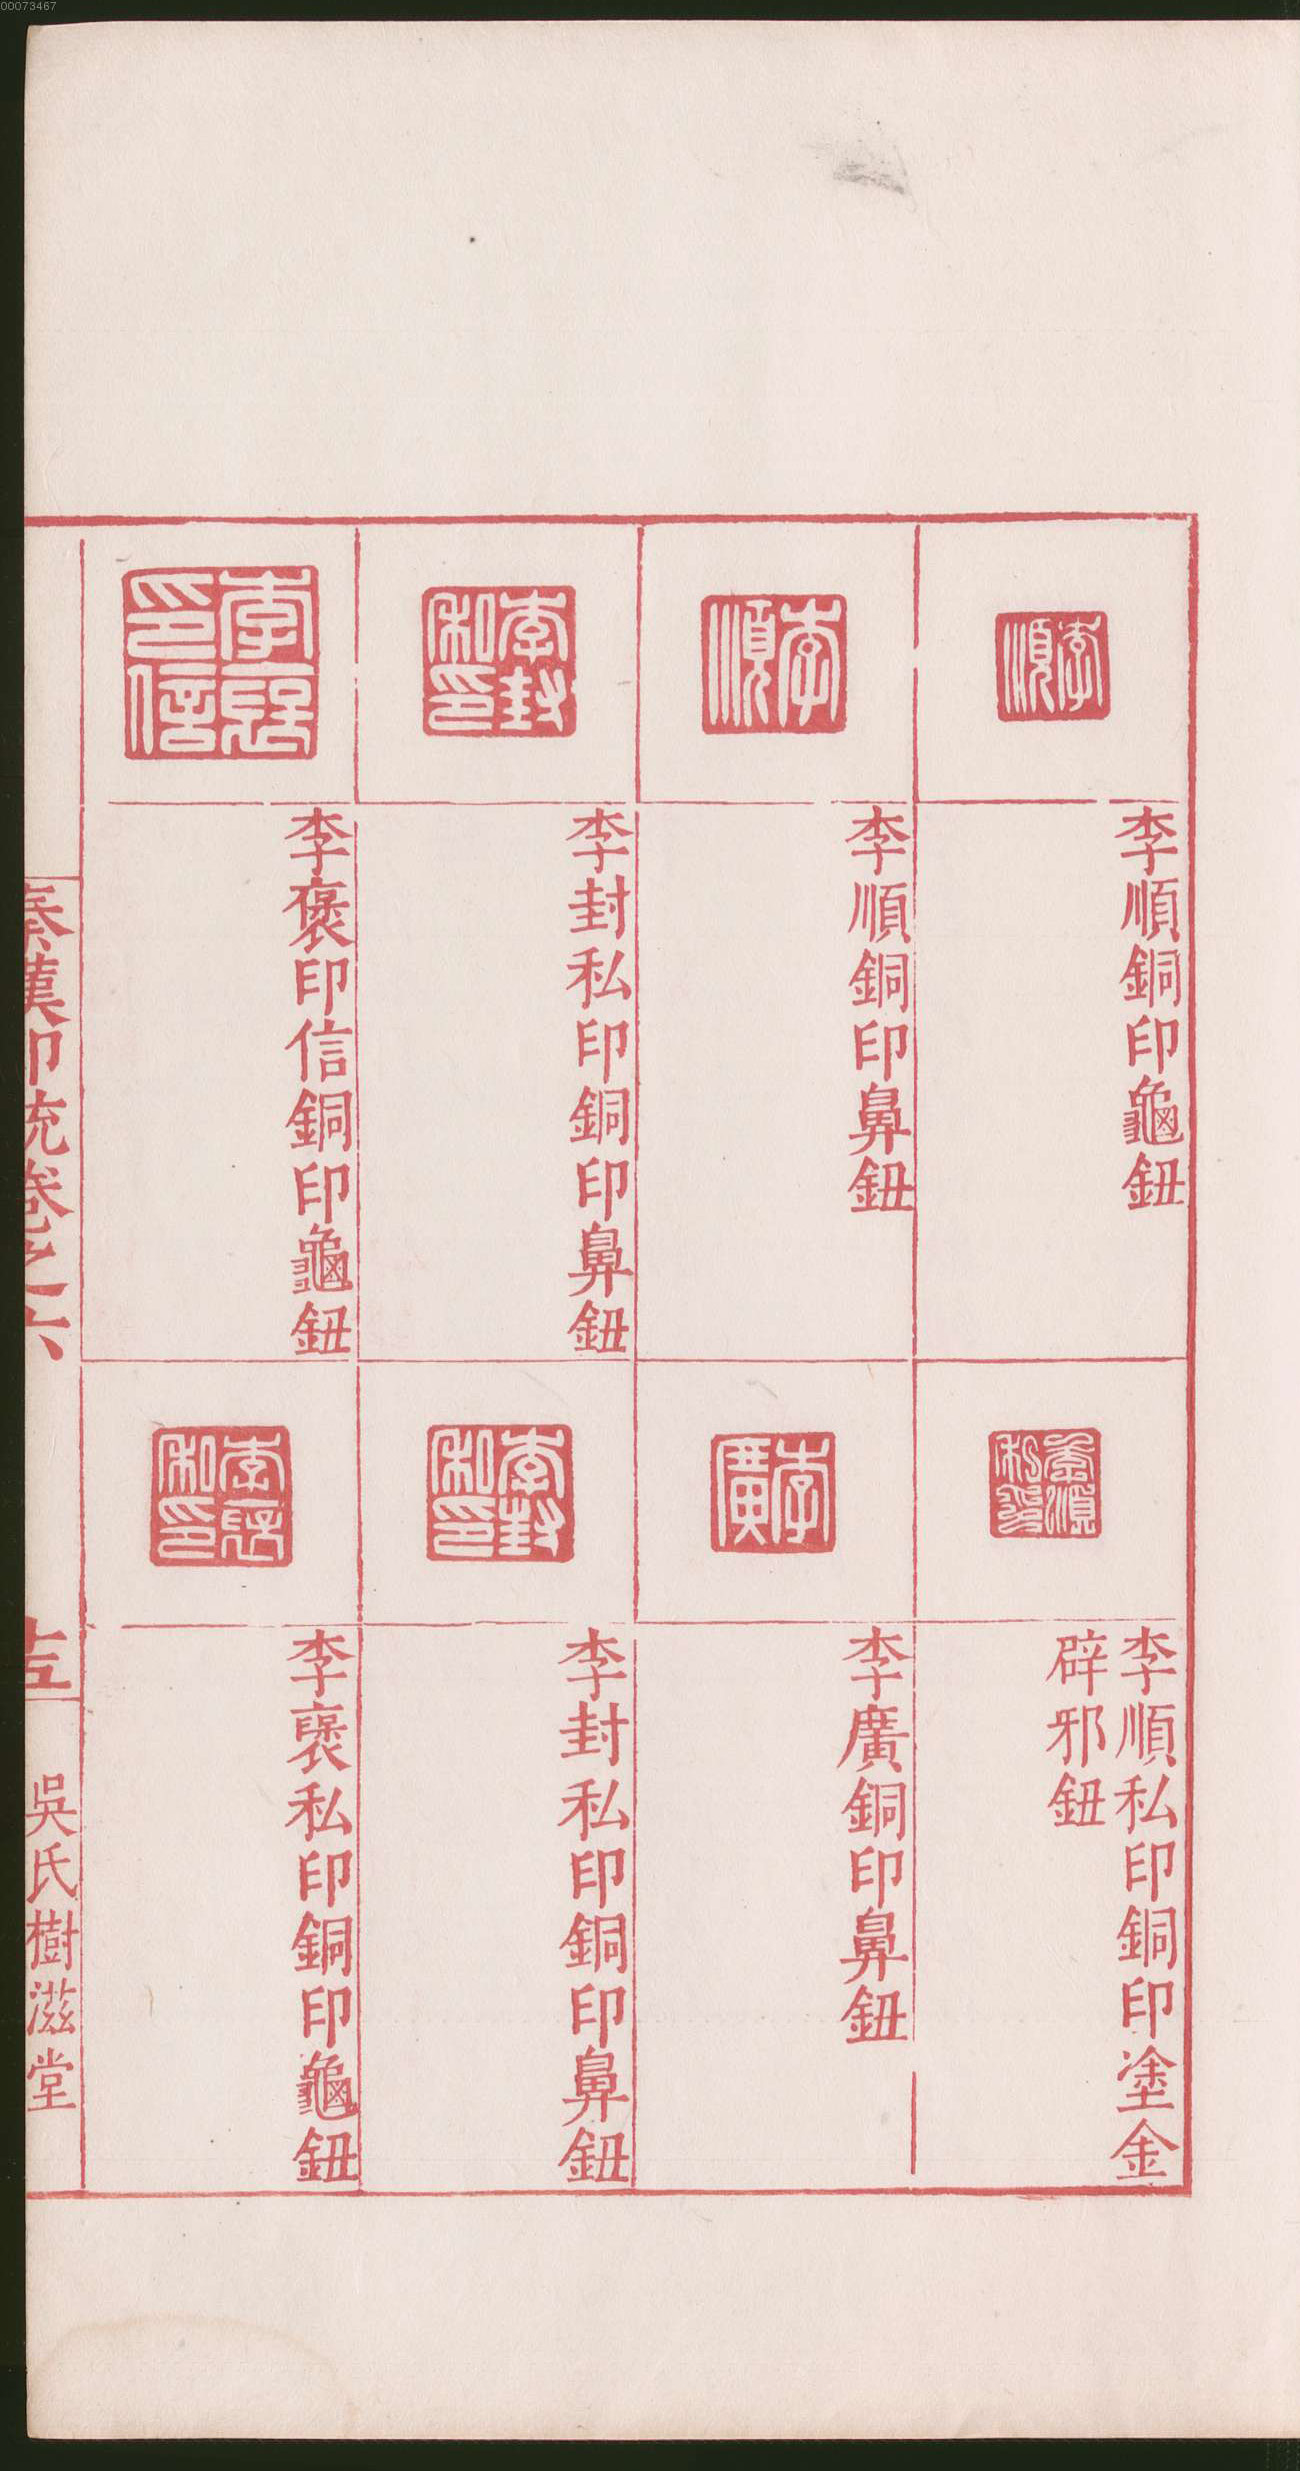 00073467
李順
李順銅印龜鈕
李順
李順銅印鼻鈕
李封私印
李封私印銅印鼻鈕
李褒印信
李褒印信銅印龜鈕
李順私印
李順私印銅印塗金
辟邪鈕
李廣
李廣銅印鼻鈕
李封私印
李封私印銅印鼻鈕
李褒私印
李褒私印銅印龜鈕
秦漢印統卷之六
吳氏樹滋堂